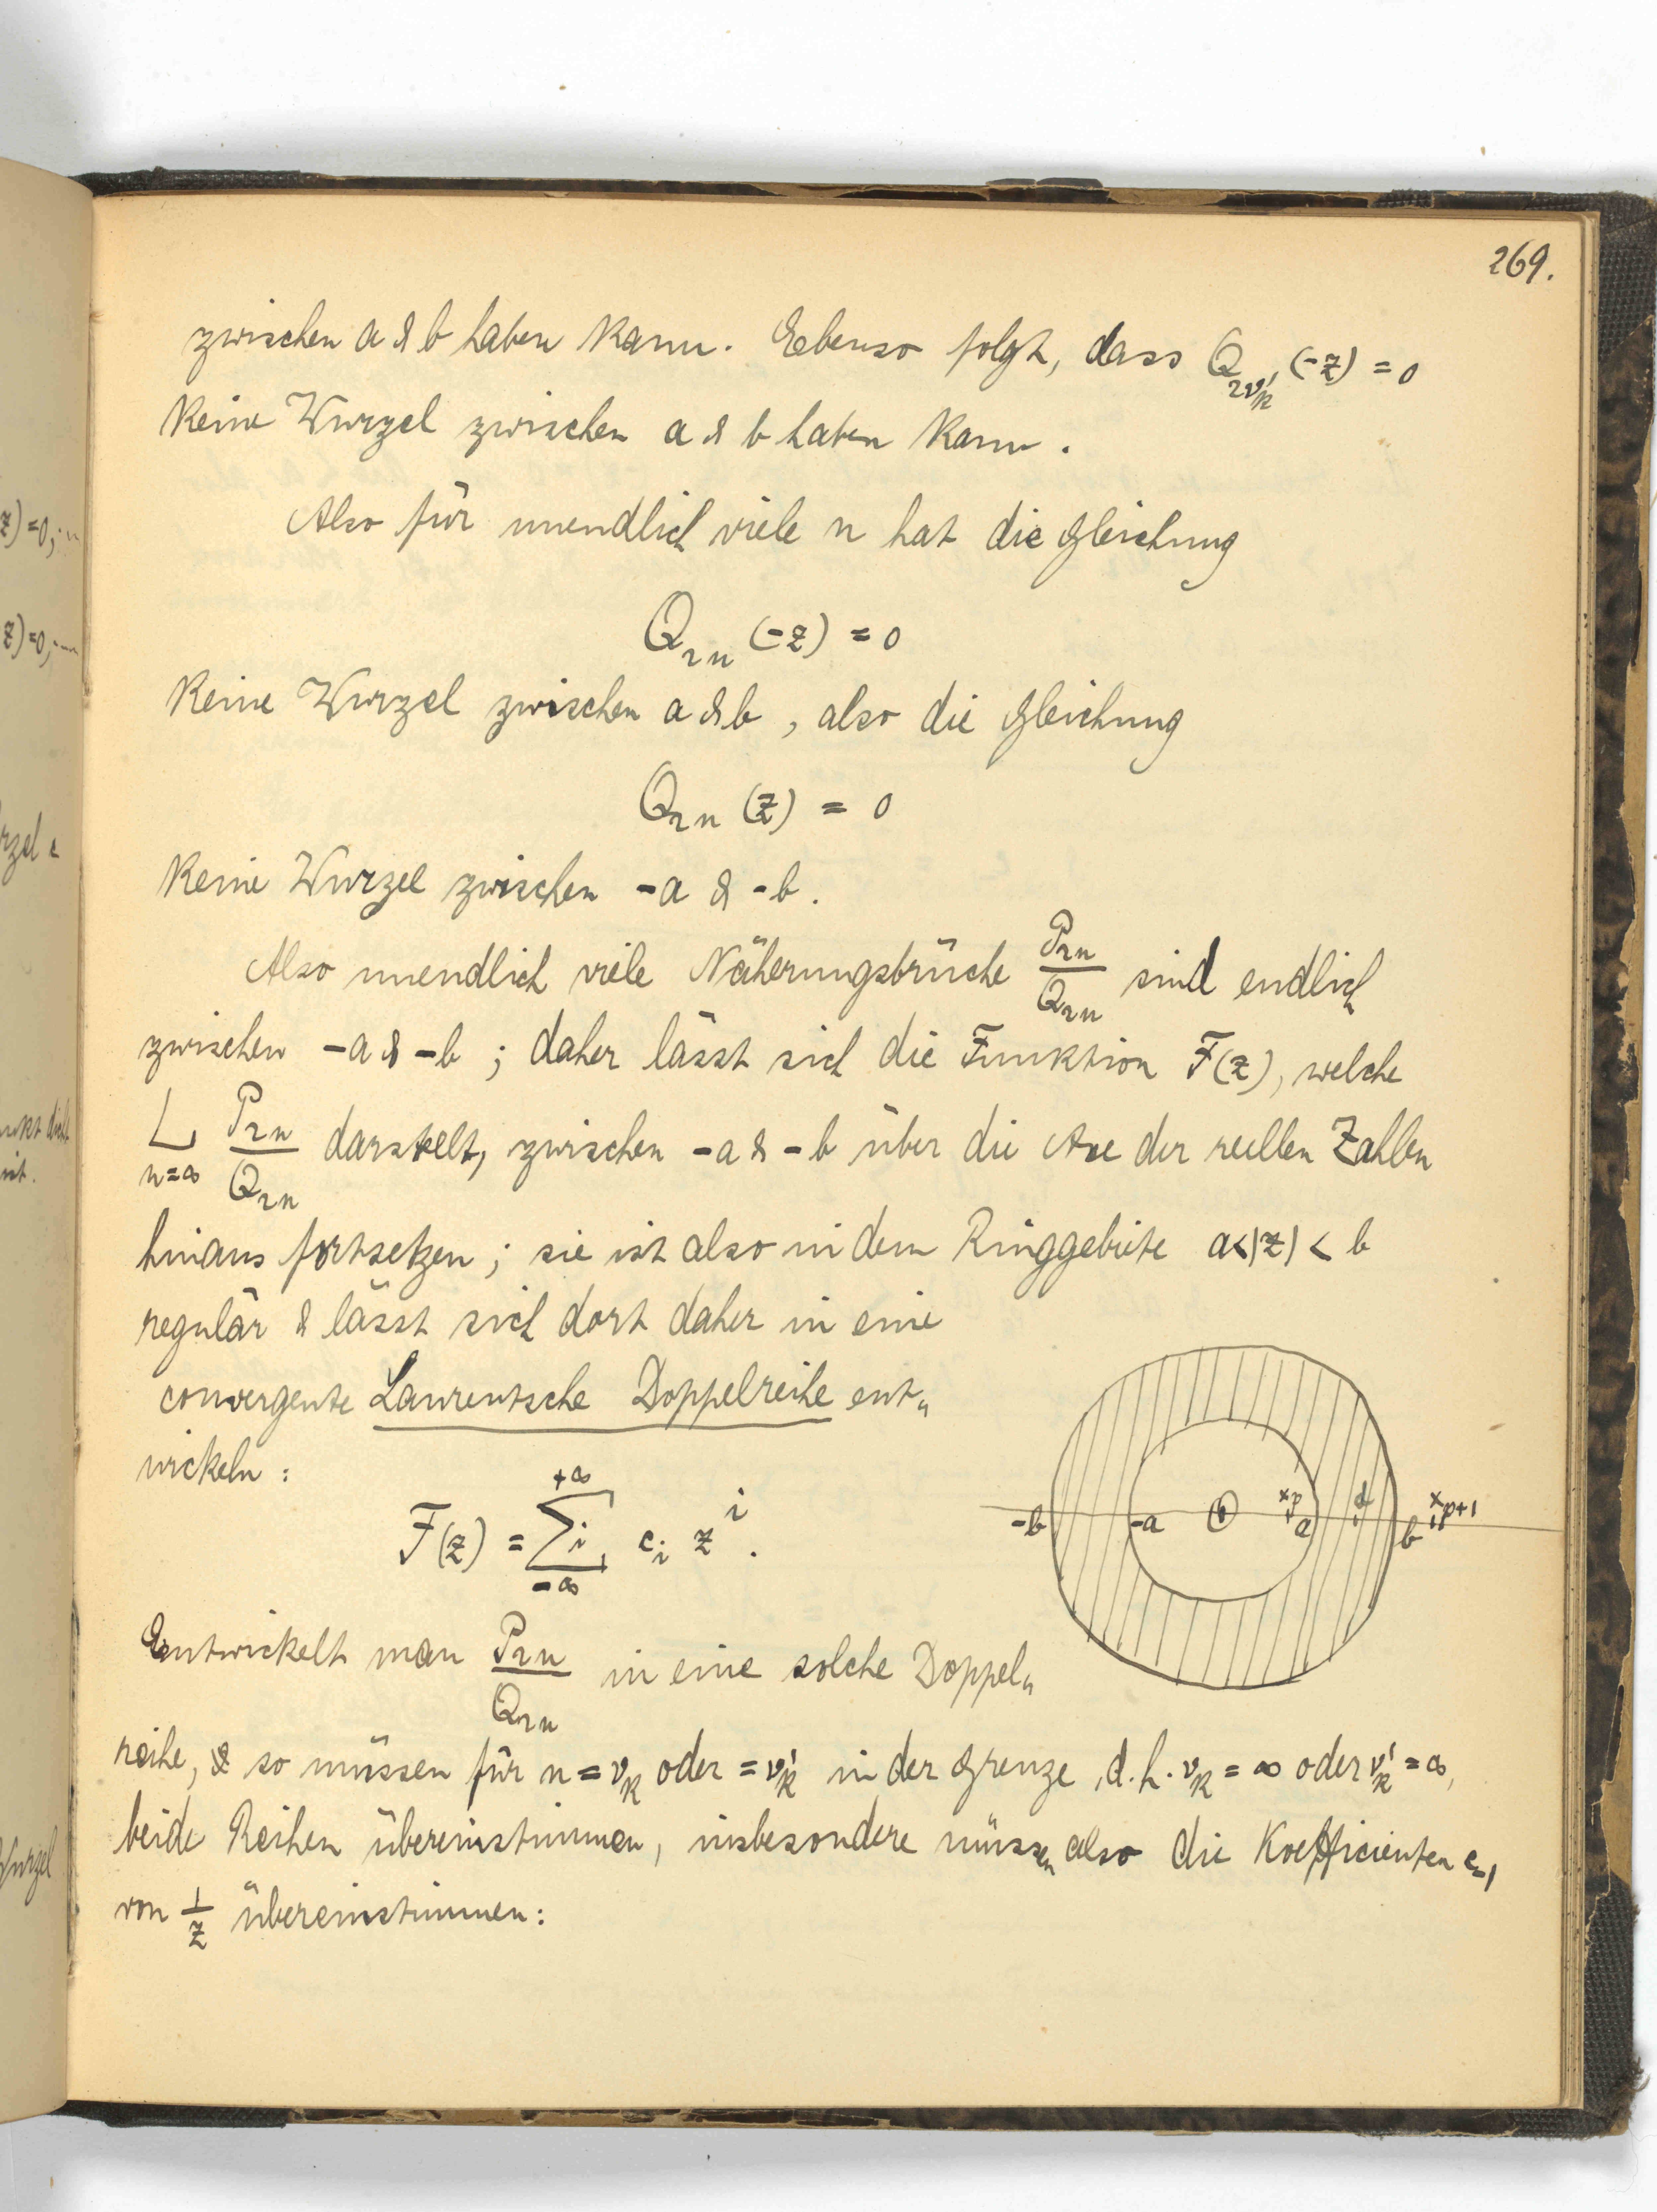 269.
zwischen a & b haben kann. Ebenso folgt, dass Q_{2ν'_k}(-z) = 0
keine Wurzel zwischen a & b haben kann.
Also für unendlich viele n hat die Gleichung
Q_{2n}(-z) = 0
keine Wurzel zwischen a & b, also die Gleichung
Q_{2n}(z) = 0
keine Wurzel zwischen -a & -b.
Also unendlich viele Näherungsbrüche P_{2n}/Q_{2n} sind endlich
zwischen -a & -b; daher lässt sich die Funktion F(z), welche
L_{n=∞} P_{2n}/Q_{2n} darstellt, zwischen -a & -b über die Axe der reellen Zahlen
hinaus fortsetzen; sie ist also in dem Ringgebiete a<|z|< b
regulär & lässt sich dort daher in eine
convergente Laurentsche Doppelreihe ent„
wickeln:
F(z) = \sum_{-∞}^{+∞}{}_i, c_i z^i.
-b -a 0 x_p a d b x_{p+1}
Entwickelt man P_{2n}/Q_{2n} in eine solche Doppel„
reihe, & so müssen für n = ν_k oder = ν'_k in der Grenze, d.h. ν_k = ∞ oder ν'_k = ∞,
beide Reihen übereinstimmen, insbesondere müssen also die Koefficienten c_{-1}
von 1/z übereinstimmen: